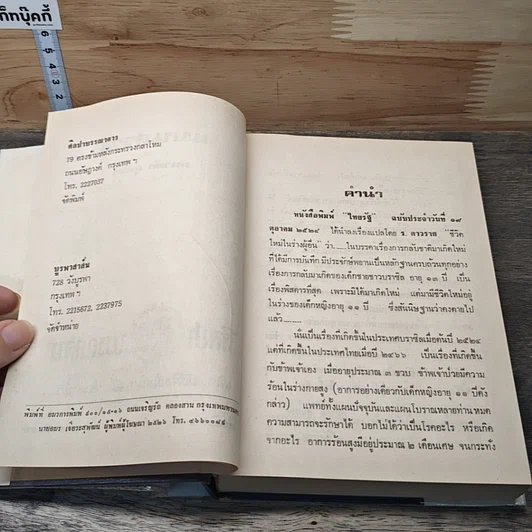 เก็ทบุ๊คกี้
6 5 4 3 2
ศิลปาบรรณาคาร
79 ตรงข้ามหลังกระทรวงกลาโหม
ถนนอัษฎางค์ กรุงเทพ ฯ
โทร. 2227037
จัดพิมพ์
บูรพาสาส์น
728 วังบูรพา
กรุงเทพ ฯ
โทร. 2215672, 2237975
จัดจำหน่าย
พิมพ์ที่ อมรการพิมพ์ ๘๐๐/๑๕-๑๖ ถนนเจริญรัถ คลองสาน กรุงเทพมหานคร
นายอมร เจียรสุพัฒน์ ผู้พิมพ์ผู้โฆษณา ๒๕๒๖ โทร.
คำนำ
หนังสือพิมพ์ "ไทยรัฐ" ฉบับประจำวันที่ ๑๙
ตุลาคม ๒๕๒๔ ได้นำลงเรื่องแปลโดย ร. ดาวราย "ชีวิต
ใหม่ในร่างผู้อื่น" ว่า.....ในบรรดาเรื่องการกลับชาติมาเกิดใหม่
ที่ได้มีการบันทึก มีประจักษ์พยานเป็นหลักฐานครบถ้วนทุกอย่าง
เรื่องการกลับมาเกิดของเด็กชายชาวบราซิล อายุ ๑๓ ปี เป็น
เรื่องพิสดารที่สุด เพราะมิได้มาเกิดใหม่ แต่มามีชีวิตใหม่อยู่
ในร่างของเด็กหญิงอายุ ๑๑ ปี ซึ่งสันนิษฐานว่าคงตายไป
แล้ว.........
นั่นเป็นเรื่องที่เกิดขึ้นในประเทศบราซิลเมื่อต้นปี ๒๕๒๔
แต่ที่เกิดขึ้นในประเทศไทยเมื่อปี ๒๔๖๖ เป็นเรื่องที่เกิดขึ้น
กับข้าพเจ้าเอง เมื่ออายุประมาณ ๓ ขวบ ข้าพเจ้าป่วยมีความ
ร้อนในร่างกายสูง (อาการอย่างเดียวกับเด็กหญิงอายุ ๑๑ ปีดัง
กล่าว) แพทย์ทั้งแผนปัจจุบันและแผนโบราณหลายท่าน หมด
ความสามารถจะรักษาได้ บอกไม่ได้ว่าเป็นโรคอะไร หรือเกิด
จากอะไร อาการร้อนสูงมีอยู่ประมาณ ๒ เดือนเศษ จนกระทั่ง